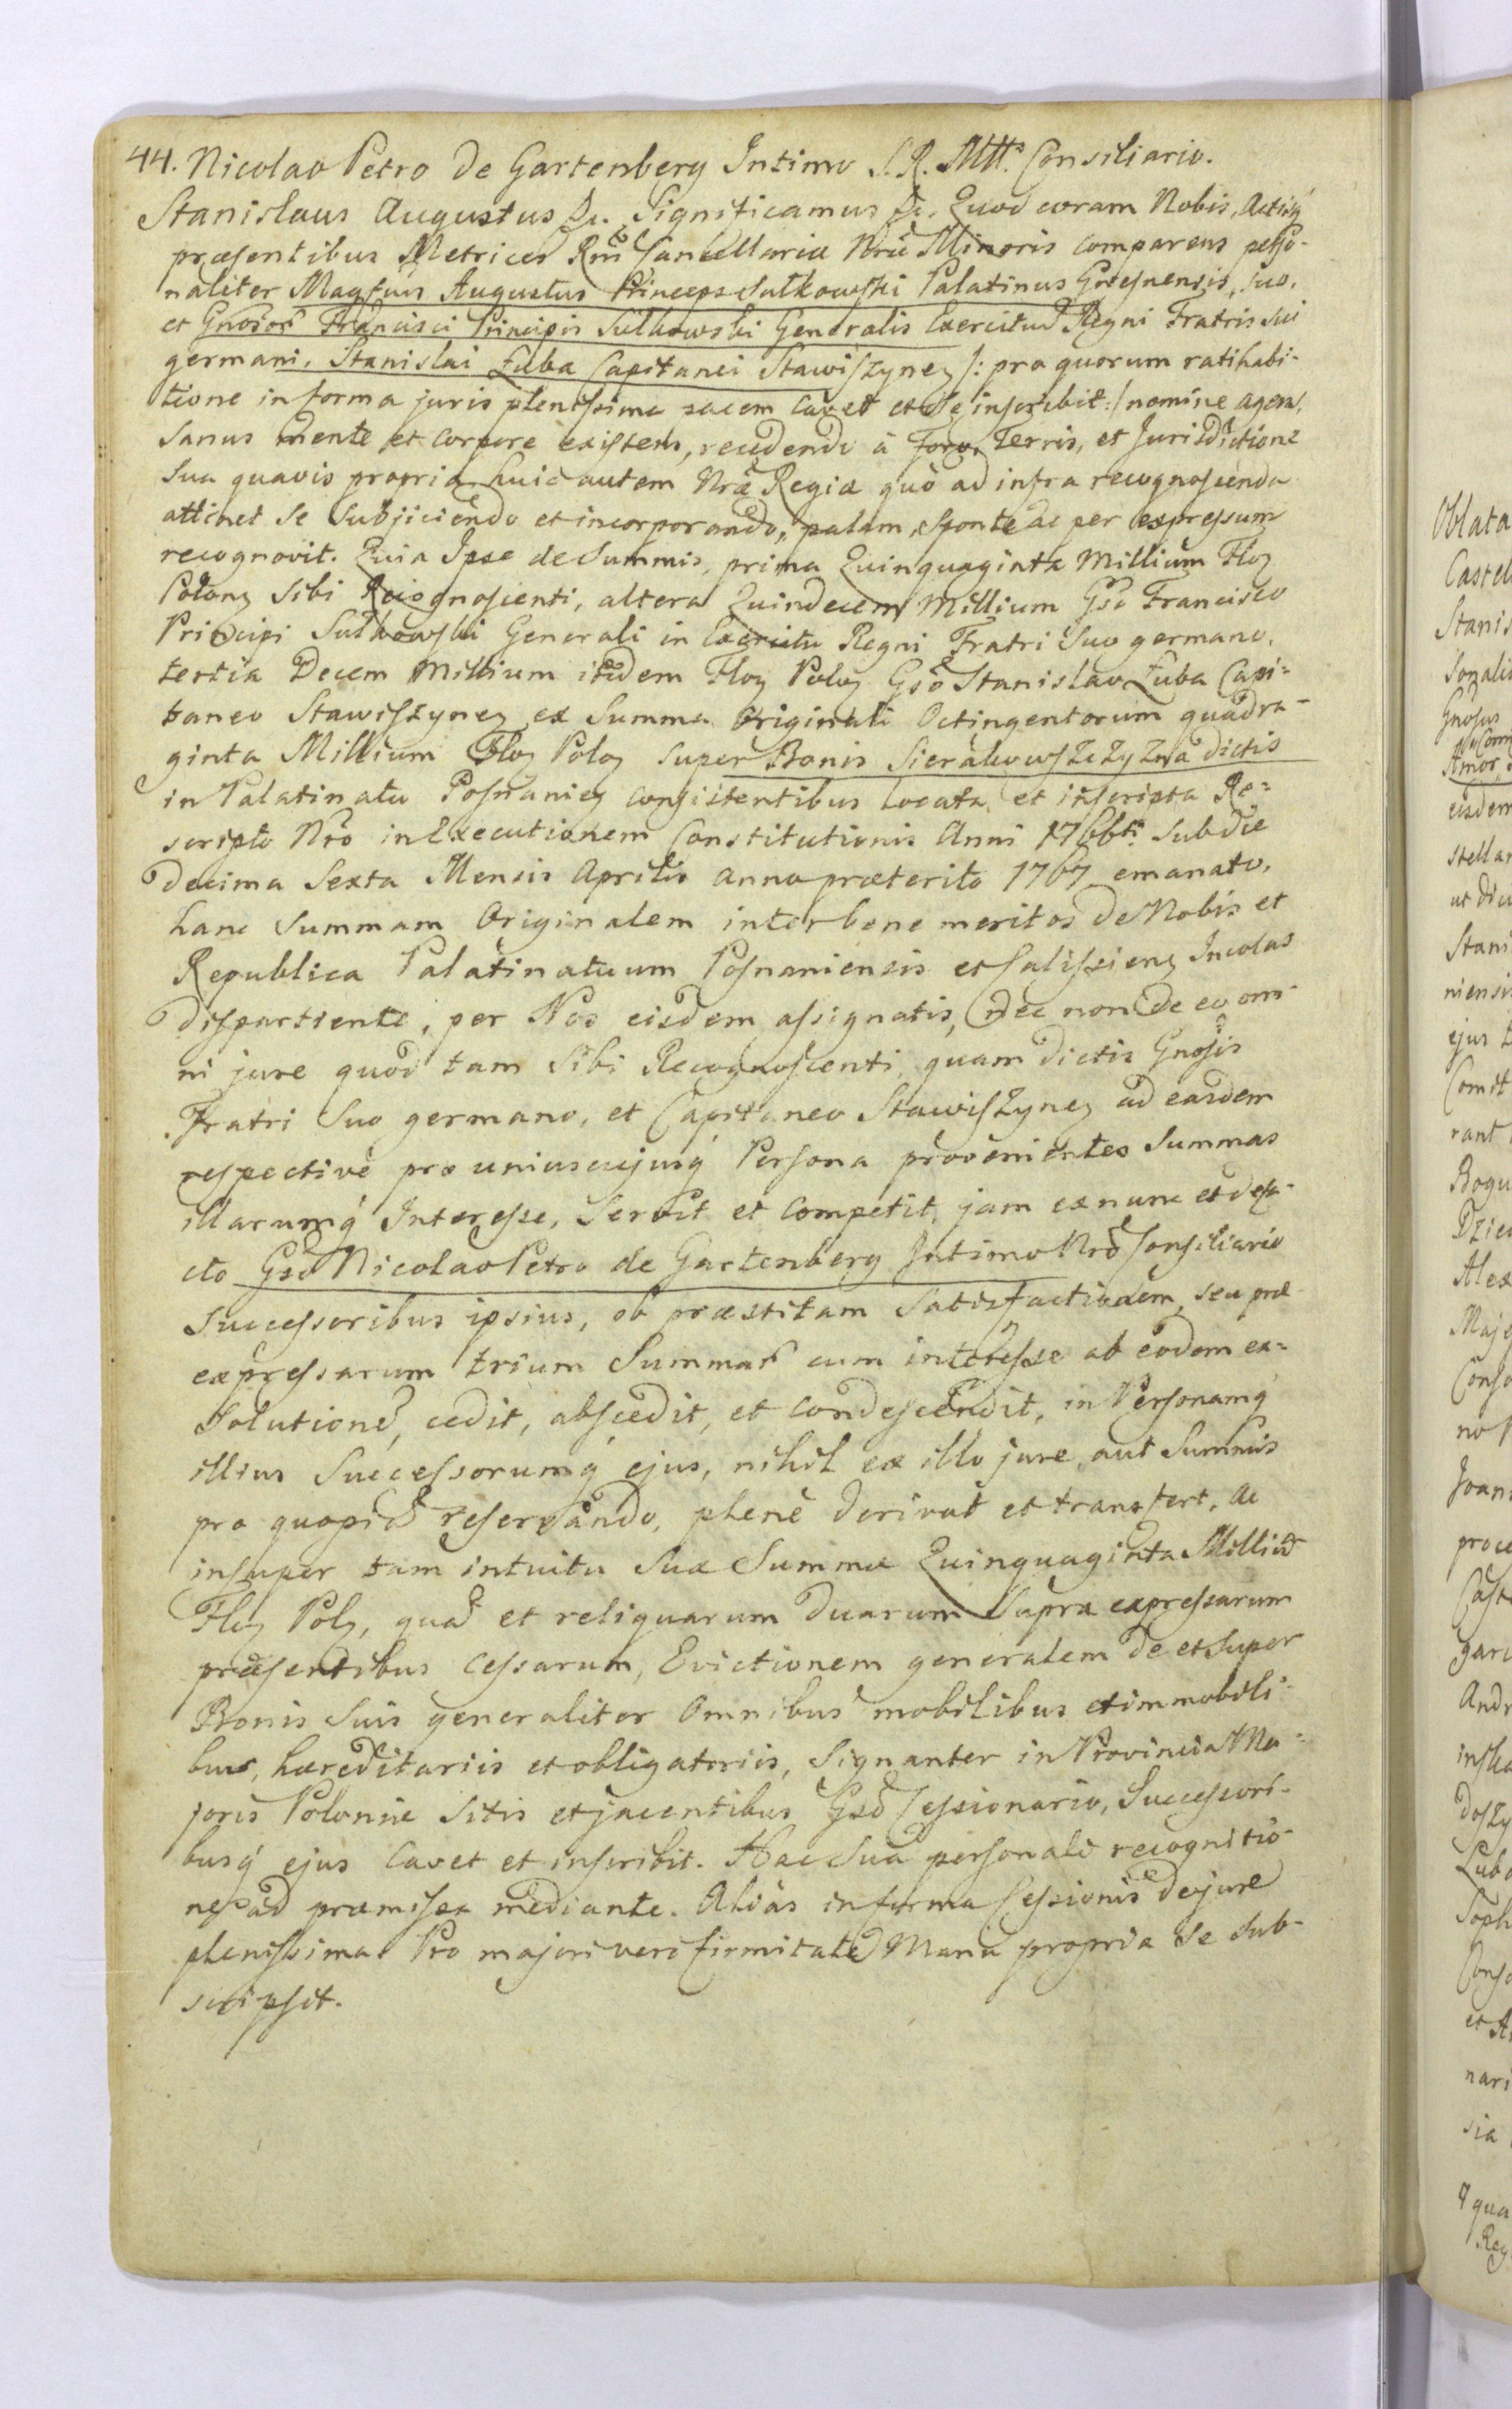 44. Nicolao Petro de Gartenberg Intimo S. R. Mtt. Consiliario.
Stanislaus Augustus &c. Significamus &c. Quod coram Nobis, Actisq́
præsentibus Metrices Rni Cancellariæ Nræ Minoris comparens perso-
naliter Magfcus Augustus Princeps Sułkowski Palatinus Gnesnensis, suo,
et Gnosor Francisci Principis Sułkowski Generalis Exercitus Regni Fratris sui
germani, Stanislai Łuba Capitanei Stawiszynen /: pro quorum ratihabi-
tione in forma juris plenissima eadem cavet et se inscribit :/ nomine agens,
Sanus mente et corpore existens, recedendo à Foro, Terris, et Jurisdictione
Sua quavis propria huic autem Nræ Regiæ quò ad infra recognoscenda
attinet se subjiciendo et incorporando, palam, sponte ac per expressum
recognovit. Quia Ipse de Summis, prima Quinquaginta Millium Floz
Polonz sibi Recognoscenti, altera Quindecem Millium Gso Francisco
Principi Sułkowski Generali in Exercitu Regni Fratri Suo germano,
tertia Decem Millium itidem Floz Poloz Gso Stanislao Łuba Capi-
taneo Stawiszynen ex Summa Originali Octingentorum quadra-
ginta Millium Floz Poloz super Bonis Sierakowszczyzna dictis
in Palatinatu Posnanien consistentibus locata et inscripta Re-
scripto Nro in Executionem Constitutionis Anni 1766ti sub die
decima Sexta Mensis Aprilis anno præterito 1767 emanato,
hanc Summam Originalem inter bene meritos de Nobis et
Republica Palatinatuum Posnaniensis et Calissien Incolas
dispartiente, per Nos eisdem assignatis, nec non de eo om-
ni jure quod tam sibi Recognoscenti, quam dictis Gnosis
Fratri Suo germano, et Capitaneo Stawiszynen ad easdem
respectivè pro uniuscujusq́ Persona provenientes Summas
illarumq́ Interesse, servit et competit, jam ex nunc et de fa-
cto Gso Nicolao Petro de Gartenberg Intimo Nro Consiliario
Successoribus ipsius, ob præstitam satisfactionem, seu præ
expressarum trium Summar cum interesse ab eodem ex-
solutione, cedit, abscedit, et condescendit, in Personamq́
illius Successorumq́ ejus, nihil ex illo jure aut Summis
pro quopiā reservando, plenè derivat et transfert, ac
insuper tam intuitu suæ Summæ Quinquaginta Milliū
Floz Polz, quā et reliquarum duarum supra expressarum
præsentibus cessarum, Evictionem generalem de et super
Bonis suis generaliter Omnibus mobilibus et immobili-
bus, hæreditariis et obligatoriis, signanter in Provincia Ma-
joris Poloniæ sitis et jacentibus Gso Cessionario, Successori-
busq́ ejus cavet et inscribit. Hac Sua personali recognitio-
ne ad præmissa mediante. Aliàs in forma Cessionis de jure
plenissima Pro majori vero firmitate Manu propria se sub-
scripsit.
Oblata
Castel
Stanis
Gnosus
eisdem
stellar
Stani
niensis
ejus
Comit
rant
Bogu
Alex
Maje
Conso
Joan
proce
Andr
Soph
Conso
nari
sia
qua
Reg